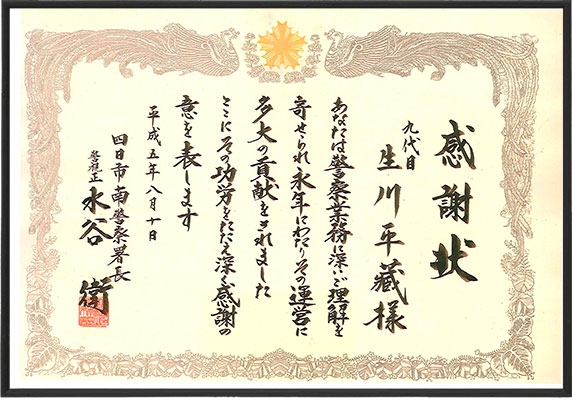 感謝状
九代目
生川平藏様
あなたは警察業務に深いご理解を
寄せられ永年にわたりその運営に
多大の貢献をされました
ここにその功労をたたえ深く感謝の
意を表します
平成五年八月十日
四日市南警察署長
警視正 水谷 衛